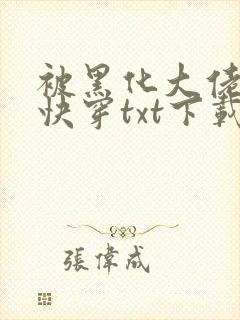 被黑化大佬
快穿txt下載
張偉成